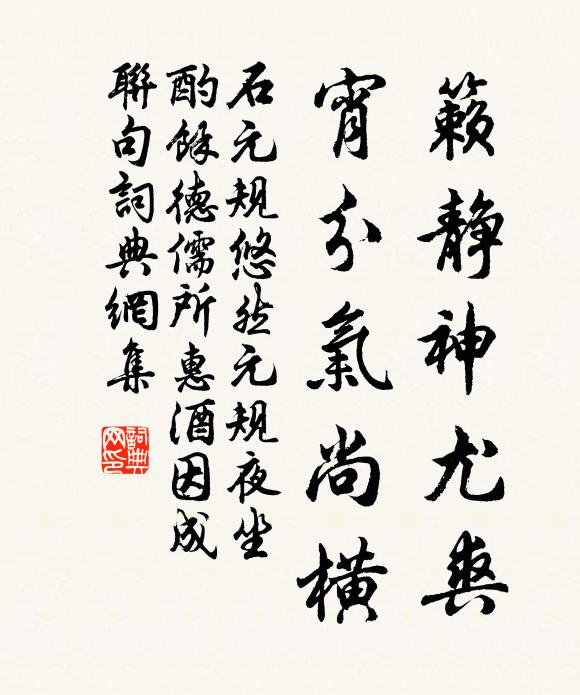 籟靜神尤爽
宵分氣尚橫
石元規悠然元規夜坐
酌餘德儒所惠酒因成
聯句詞典網集
詞典网印